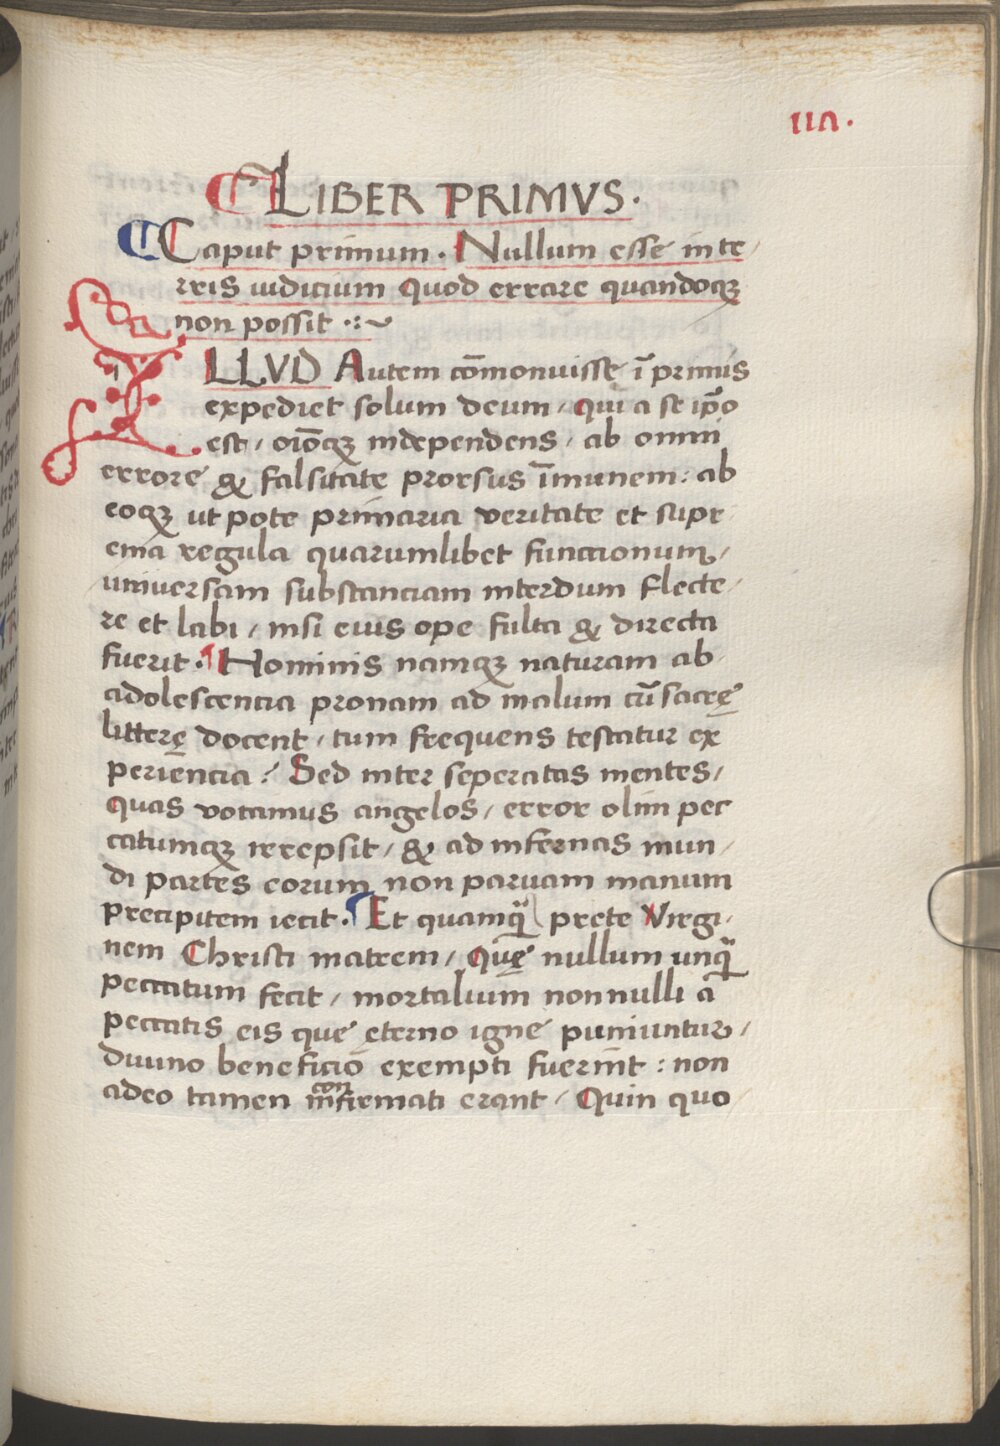 IIΛ.
LIBER PRIMVS.
Caput primum. Nullum esse in te/
rris iudicium Quod errare quandoqꝫ
non possit .:~
ILLVD Autem cōmonuisse ī primis
expediet solum deum/ qui a se ip̄o
est/ oīoqꝫ independens/ ab omni
errore & falsitate prorsus īmunem: ab
eoqꝫ ut pote primaria veritate et supr
ema regula quarumlibet functionum/
universam substanciam interdum flecte/
re et labi/ nisi eius ope fulta & directa
fuerit. ¶ Hominis namqꝫ naturam ab
adolescencia pronam ad malum cū sacrę
litterę docent/ tum frequens testatur ex
periencia: Sed inter seperatas mentes/
quas vocamus angelos/ error olim pec
catumqꝫ irrepsit/ & ad infernas mun/
di partes eorum non parvam manum
precipitem iecit. ¶ Et quamq̄ prete Virgi/
nem Christi matrem/ Quę nullum unq̄
peccatum fecit/ mortalium nonnulli a
peccatis eis que eterno igne puniuntur/
divino beneficio exempti fuerint: non
adeo tamen confirmati erant/ Quin quo/